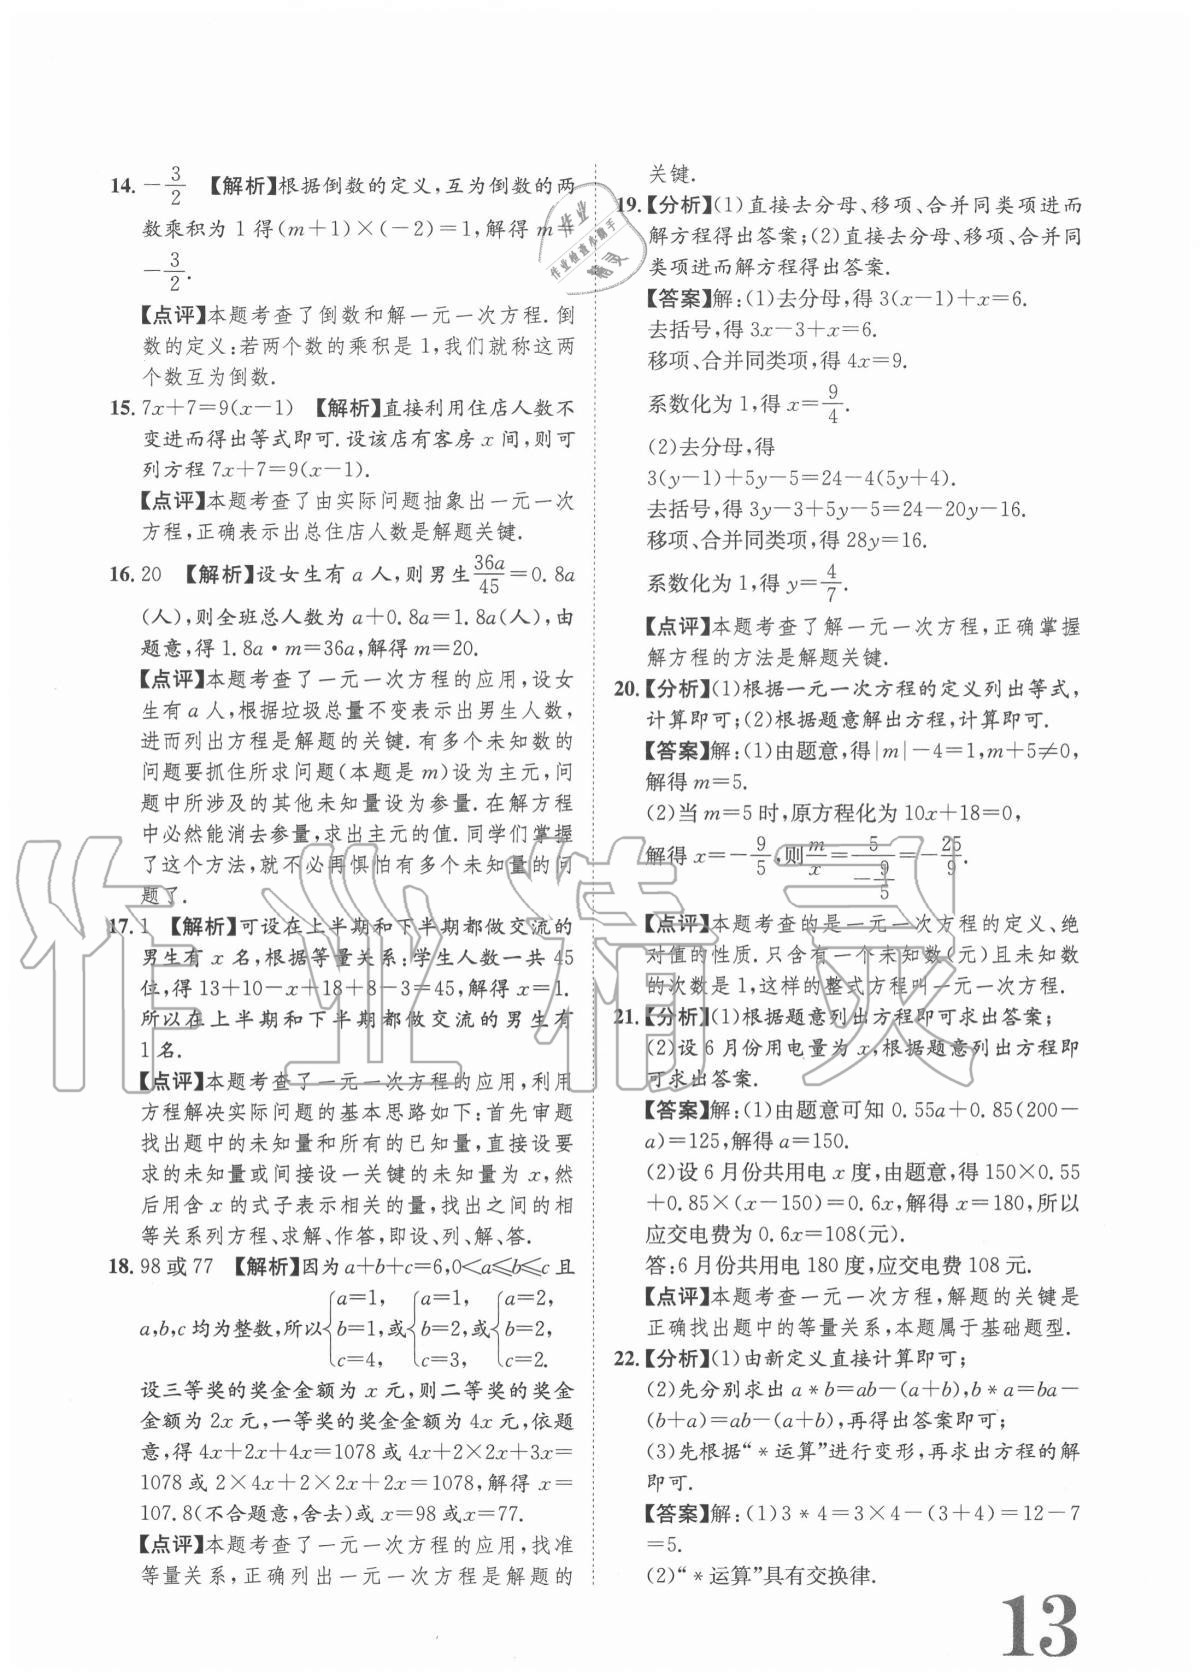 14. −3/2 【解析】根据倒数的定义,互为倒数的两
数乘积为 1 得(m+1)×(−2)=1,解得 m=
−3/2.
【点评】本题考查了倒数和解一元一次方程.倒
数的定义:若两个数的乘积是 1,我们就称这两
个数互为倒数.
15. 7x+7=9(x−1) 【解析】直接利用住店人数不
变进而得出等式即可.设该店有客房 x 间,则可
列方程 7x+7=9(x−1).
【点评】本题考查了由实际问题抽象出一元一次
方程,正确表示出总住店人数是解题关键.
16. 20 【解析】设女生有 a 人,则男生36a/45=0.8a
(人),则全班总人数为 a+0.8a=1.8a(人),由
题意,得 1.8a·m=36a,解得 m=20.
【点评】本题考查了一元一次方程的应用,设女
生有 a 人,根据垃圾总量不变表示出男生人数,
进而列出方程是解题的关键.有多个未知数的
问题要抓住所求问题(本题是 m)设为主元,问
题中所涉及的其他未知量设为参量.在解方程
中必然能消去参量,求出主元的值.同学们掌握
了这个方法,就不必再惧怕有多个未知量的问
题了.
17. 1 【解析】可设在上半期和下半期都做交流的
男生有 x 名,根据等量关系:学生人数一共 45
位,得 13+10−x+18+8−3=45,解得 x=1.
所以在上半期和下半期都做交流的男生有
1 名.
【点评】本题考查了一元一次方程的应用,利用
方程解决实际问题的基本思路如下:首先审题
找出题中的未知量和所有的已知量,直接设要
求的未知量或间接设一关键的未知量为 x,然
后用含 x 的式子表示相关的量,找出之间的相
等关系列方程、求解、作答,即设、列、解、答.
18. 98 或 77 【解析】因为 a+b+c=6,0<a≤b≤c 且
a,b,c 均为整数,所以{a=1, b=1, c=4,或{a=1, b=2, c=3,或{a=2, b=2, c=2.
设三等奖的奖金金额为 x 元,则二等奖的奖金
金额为 2x 元,一等奖的奖金金额为 4x 元,依题
意,得 4x+2x+4x=1078 或 4x+2×2x+3x=
1078 或 2×4x+2×2x+2x=1078,解得 x=
107.8(不合题意,舍去)或 x=98 或 x=77.
【点评】本题考查了一元一次方程的应用,找准
等量关系,正确列出一元一次方程是解题的
关键.
19. 【分析】(1)直接去分母、移项、合并同类项进而
解方程得出答案;(2)直接去分母、移项、合并同
类项进而解方程得出答案.
【答案】解:(1)去分母,得 3(x−1)+x=6.
去括号,得 3x−3+x=6.
移项、合并同类项,得 4x=9.
系数化为 1,得 x=9/4.
(2)去分母,得
3(y−1)+5y−5=24−4(5y+4).
去括号,得 3y−3+5y−5=24−20y−16.
移项、合并同类项,得 28y=16.
系数化为 1,得 y=4/7.
【点评】本题考查了解一元一次方程,正确掌握
解方程的方法是解题关键.
20. 【分析】(1)根据一元一次方程的定义列出等式,
计算即可;(2)根据题意解出方程,计算即可.
【答案】解:(1)由题意,得|m|−4=1,m+5≠0,
解得 m=5.
(2)当 m=5 时,原方程化为 10x+18=0,
解得 x=−9/5,则m/x=5/(−9/5)=−25/9.
【点评】本题考查的是一元一次方程的定义、绝
对值的性质.只含有一个未知数(元)且未知数
的次数是 1,这样的整式方程叫一元一次方程.
21. 【分析】(1)根据题意列出方程即可求出答案;
(2)设 6 月份用电量为 x,根据题意列出方程即
可求出答案.
【答案】解:(1)由题意可知 0.55a+0.85(200−
a)=125,解得 a=150.
(2)设 6 月份共用电 x 度,由题意,得 150×0.55
+0.85×(x−150)=0.6x,解得 x=180,所以
应交电费为 0.6x=108(元).
答:6 月份共用电 180 度,应交电费 108 元.
【点评】本题考查一元一次方程,解题的关键是
正确找出题中的等量关系,本题属于基础题型.
22. 【分析】(1)由新定义直接计算即可;
(2)先分别求出 a*b=ab−(a+b),b*a=ba−
(b+a)=ab−(a+b),再得出答案即可;
(3)先根据“*运算”进行变形,再求出方程的解
即可.
【答案】解:(1)3*4=3×4−(3+4)=12−7
=5.
(2)“*运算”具有交换律.
13
作业精灵
作业
作业检查小助手
精灵